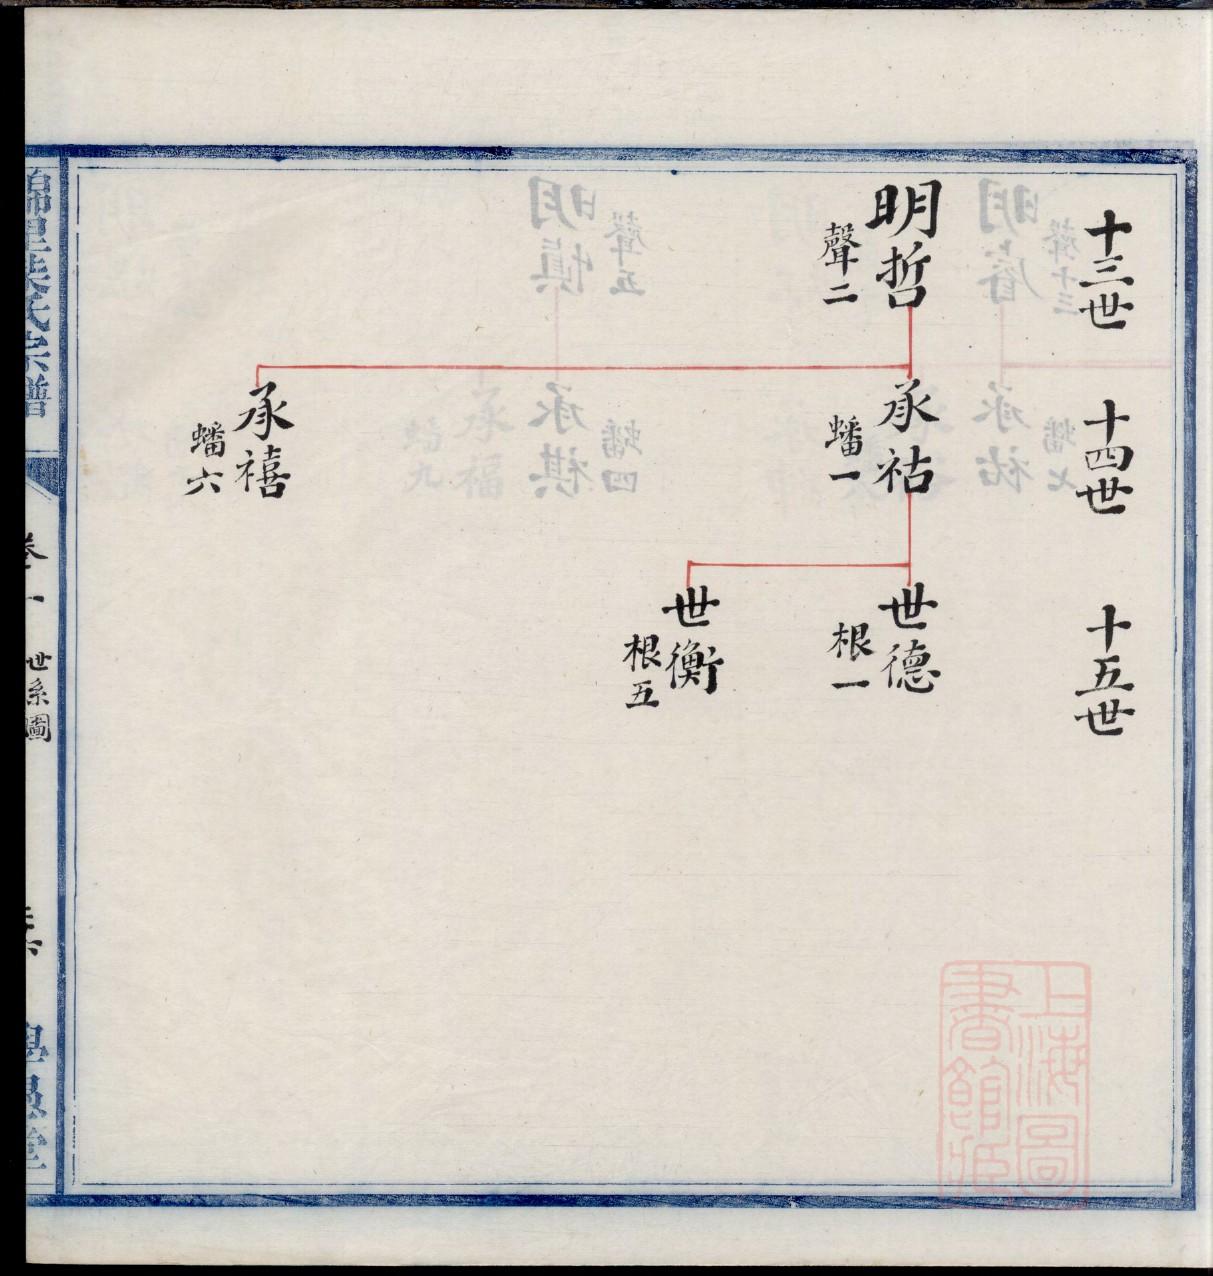 十三世
十四世
十五世
明哲
聲二
承祜
蟠一
世德
根一
世衡
根五
承禧
蟠六
世系圖
上海圖
書館藏